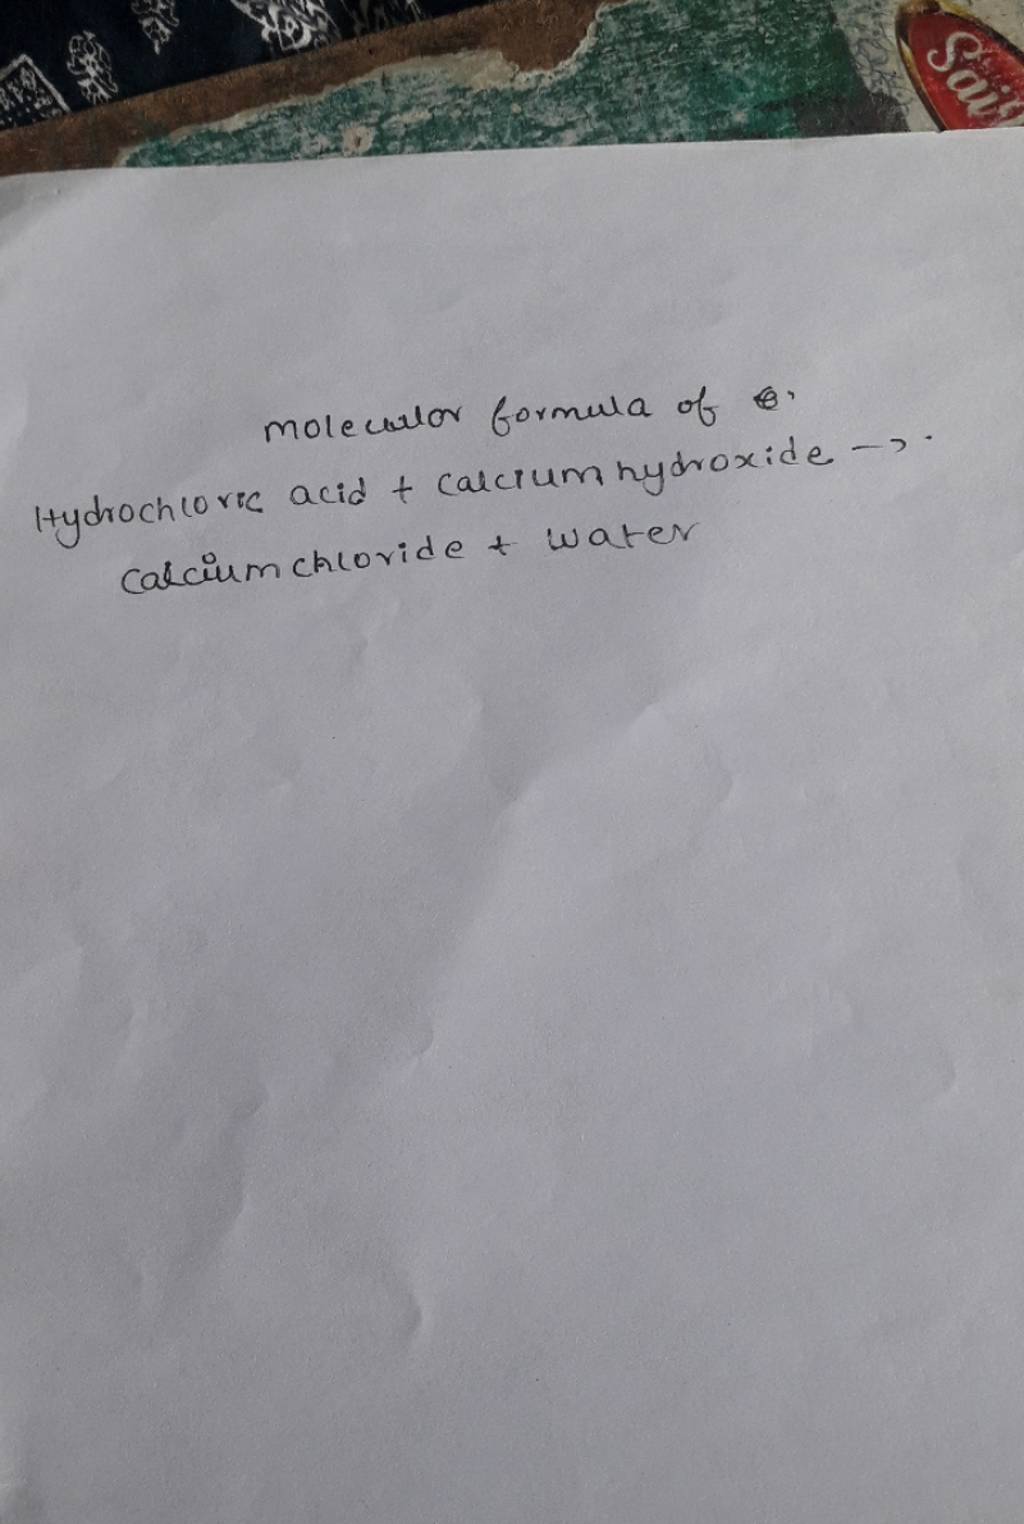 molecular formula of
Hydrochloric acid + calcium hydroxide -->.
calcium chloride + water